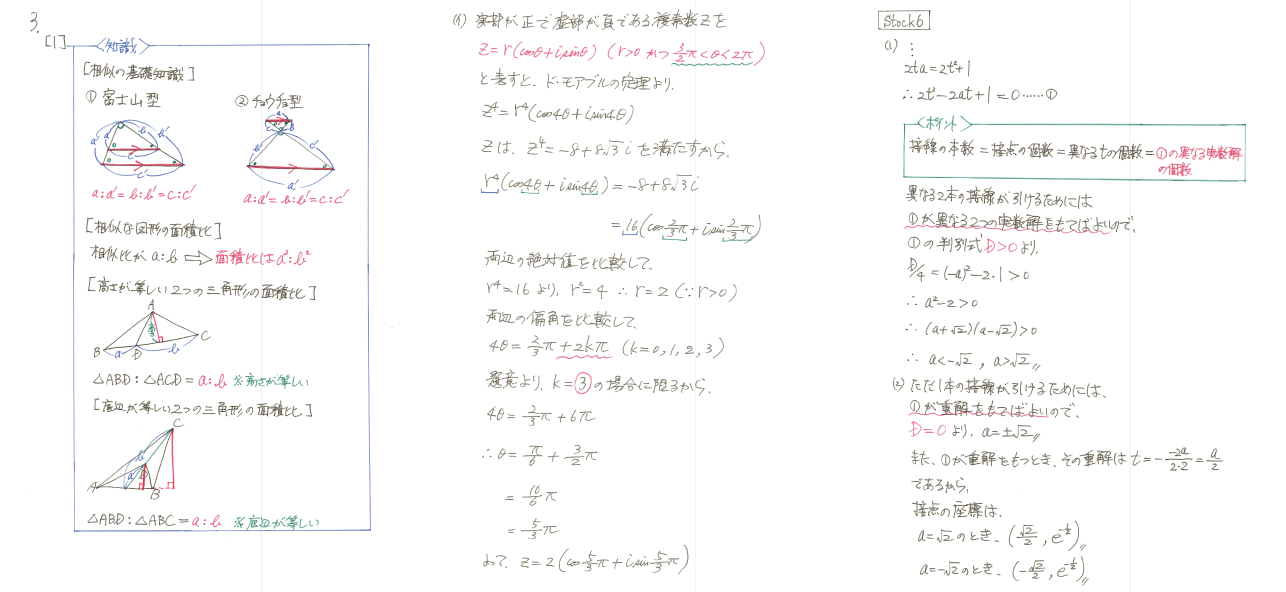 3.
[1]
<知識>
[相似の基礎知識]
① 富士山型
② チョウチョ型
a
a'
b
b'
c
c'
a
b
c
a'
b'
c'
a:a'=b:b'=c:c'
a:a'=b:b'=c:c'
[相似な図形の面積比]
相似比が a:b ⇨ 面積比は a²:b²
[高さが等しい2つの三角形の面積比]
A
B
a
D
b
C
△ABD:△ACD=a:b ※高さが等しい
[底辺が等しい2つの三角形の面積比]
C
b
a
D
A
B
△ABD:△ABC=a:b ※底辺が等しい
(イ) 実部が正で虚部が負である複素数zを
z=r(cosθ+isinθ) (r>0 かつ 3/2π<θ<2π)
と表すと、ド・モアブルの定理より、
z⁴=r⁴(cos4θ+isin4θ)
zは、z⁴=-8+8√3i を満たすから、
r⁴(cos4θ+isin4θ)=-8+8√3i
=16(cos2/3π+isin2/3π)
両辺の絶対値を比較して、
r⁴=16 より、r²=4 ∴r=2 (∵r>0)
両辺の偏角を比較して、
4θ=2/3π+2kπ (k=0,1,2,3)
題意より、k=③の場合に限るから、
4θ=2/3π+6π
∴θ=π/6+3/2π
=10/6π
=5/3π
よって、z=2(cos5/3π+isin5/3π)
Stock6
(1) ⋮
2ta=2t²+1
∴2t²-2at+1=0……①
<ポイント>
接線の本数=接点の個数=異なるtの個数=①の異なる実数解
の個数
異なる2本の接線が引けるためには
①が異なる2つの実数解をもてばよいので、
①の判別式D>0より、
D/4=(-a)²-2・1>0
∴a²-2>0
∴(a+√2)(a-√2)>0
∴a<-√2, a>√2
(2) ただ1本の接線が引けるためには、
①が重解をもてばよいので、
D=0より、a=±√2
また、①が重解をもつとき、その重解は t=-(-2a)/(2・2)=a/2
であるから、
接点の座標は、
a=√2のとき、(√2/2, e^(-1/2))
a=-√2のとき、(-√2/2, e^(-1/2))